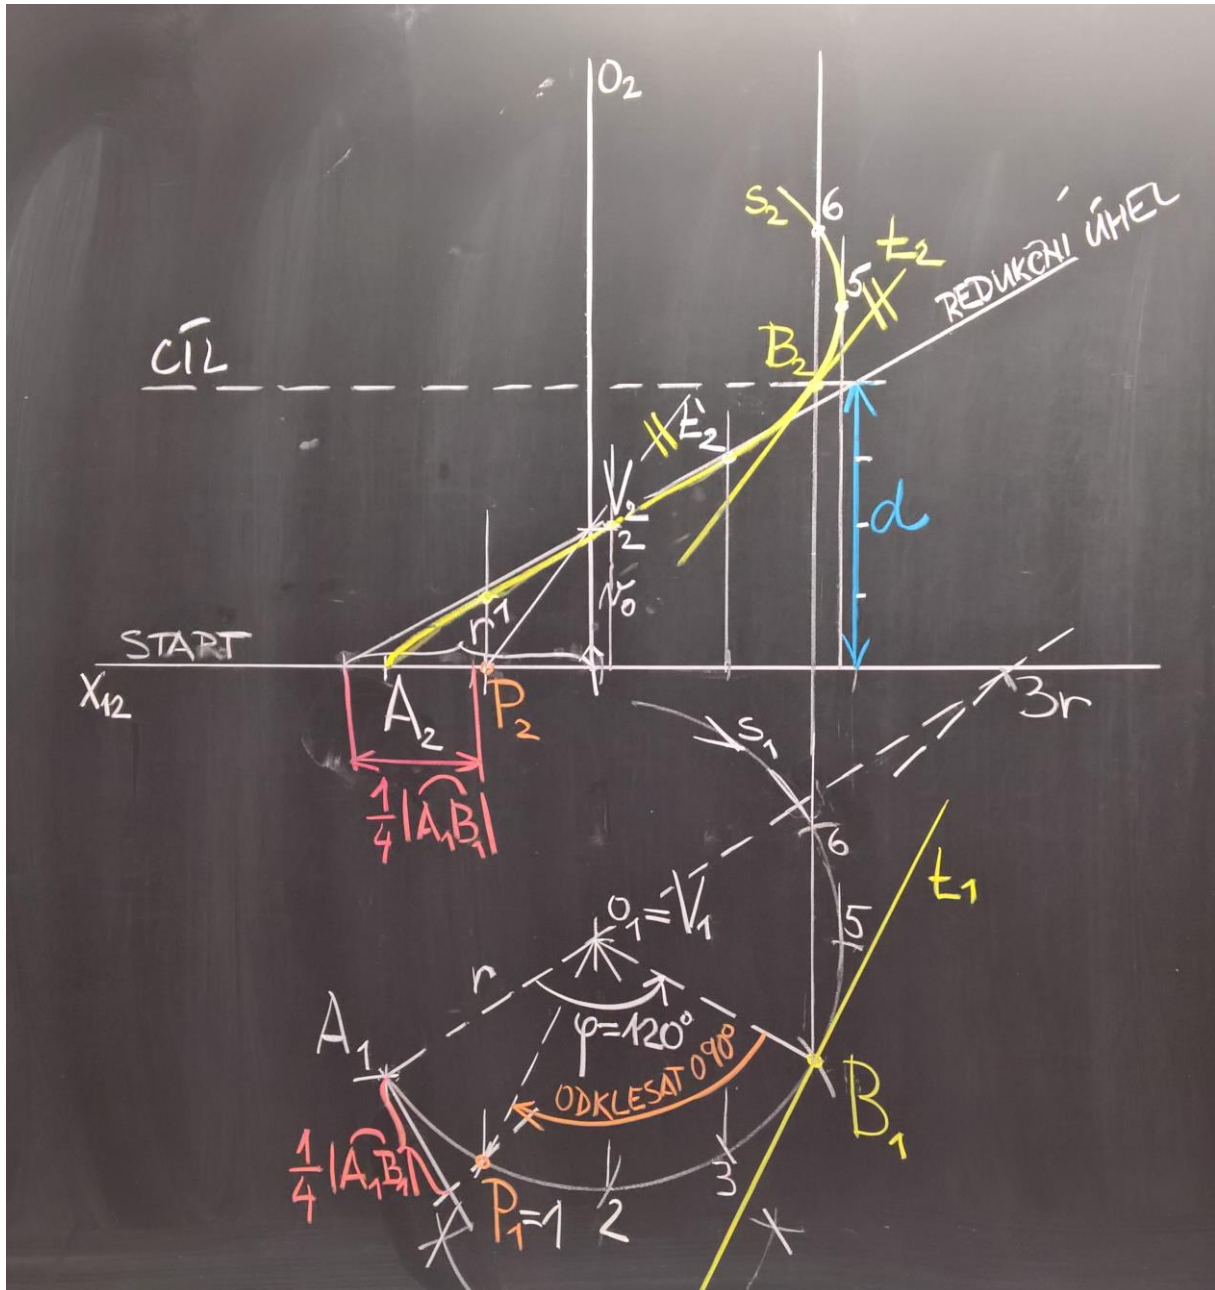 O₂
S₂
6
t₂
5
REDUKČNÍ ÚHEL
CÍL
B₂
t'₂
V₂
2
d
1
v₀
r
START
X₁₂
A₂
P₂
3r
S₁
¼|A₁B₁|
6
t₁
O₁=V₁
5
r
A₁
φ=120°
ODKLESAT O 90°
B₁
¼|A₁B₁|
P₁=1
2
3